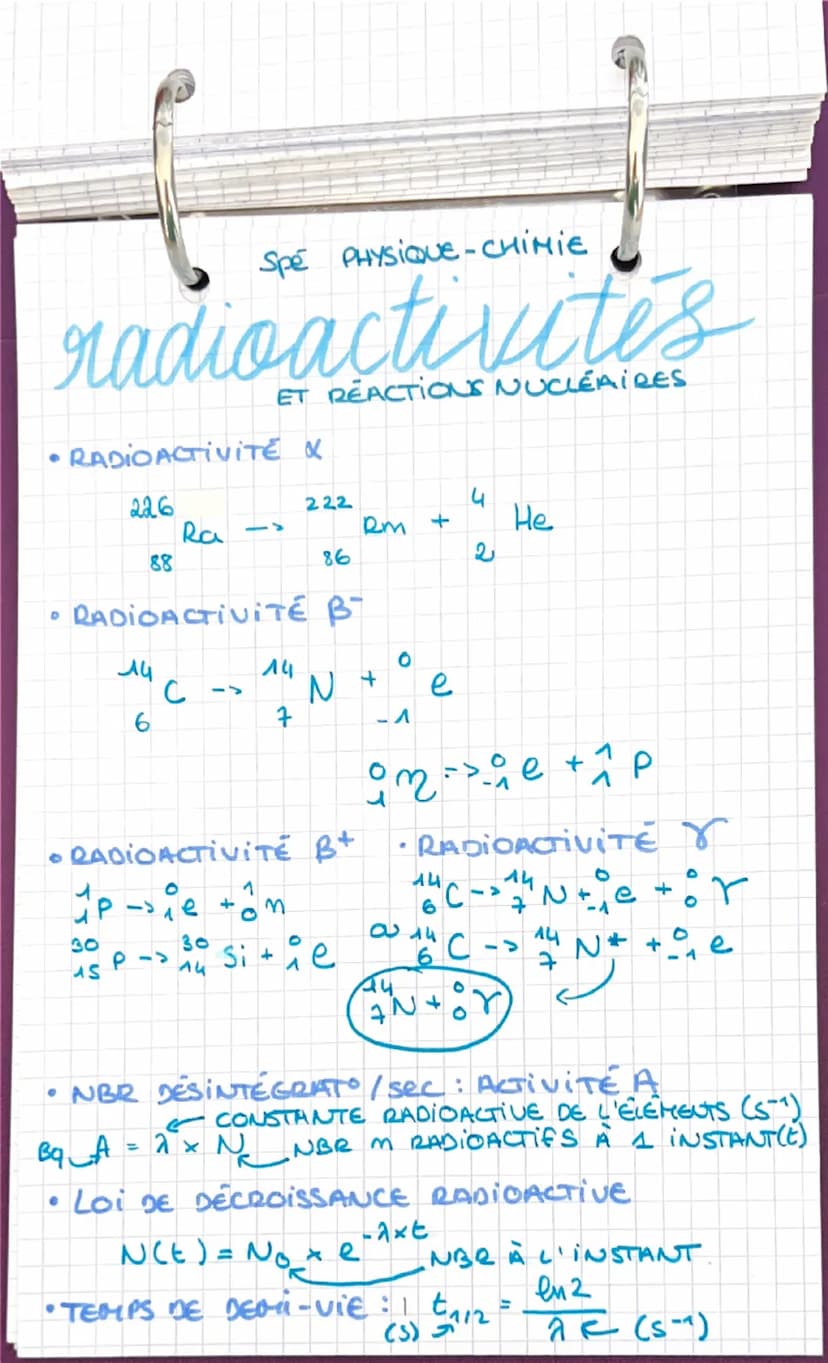 Spé PHYSIQUE-CHIMIE
radioactivités
ET RÉACTIONS NUCLÉAIRES
• RADIOACTIVITÉ α
²²⁶₈₈Ra -> ²²²₈₆Rm + ⁴₂He
• RADIOACTIVITÉ β⁻
¹⁴₆C -> ¹⁴₇N + ⁰₋₁e
⁰₁n -> ⁰₋₁e + ¹₁P
• RADIOACTIVITÉ β⁺
¹₁P -> ⁰₁e + ¹₀n
³⁰₁₅P -> ³⁰₁₄Si + ⁰₁e
• RADIOACTIVITÉ γ
¹⁴₆C -> ¹⁴₇N + ⁰₋₁e + ⁰₀γ
ou ¹⁴₆C -> ¹⁴₇N* + ⁰₋₁e
¹⁴₇N + ⁰₀γ
• NBR DÉSINTÉGRAT° /sec : ACTIVITÉ A
← CONSTANTE RADIOACTIVE DE L'ÉLÉMENTS (S⁻¹)
Bq A = λ × N ← NBR n RADIOACTIFS À 1 INSTANT(t)
• LOI DE DÉCROISSANCE RADIOACTIVE
N(t) = N₀ × e^(-λ×t)
NBR À L'INSTANT
• TEMPS DE DEMI-VIE : t₁/₂ = ln2 / λ ← (S⁻¹)
(S)